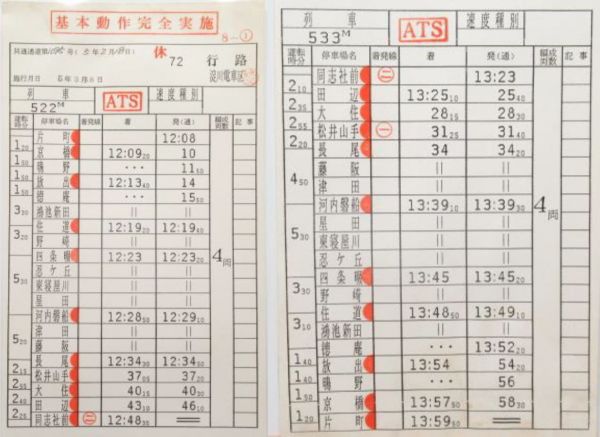 基本動作完全実施
8-①
休
72 行路
淀川電車区
施行月日 5年3月8日
列車 ATS 速度種別
522M
運転時分 停車場名 着発線 着 発(通) 編成両数 記事
片町 12:08
1 20
京橋 12:09 20 10
1 50
鴫野 ・・・ 11 50
1 50
放出 12:13 40 14
1 50
徳庵 ・・・ 15 50
鴻池新田 || ||
3 30
住道 12:19 20 12:19 40
野崎 || ||
3 20
四条畷 12:23 12:23 20
忍ケ丘 || ||
東寝屋川 || ||
星田 || ||
5 30
河内磐船 12:28 50 12:29 10
津田 || ||
藤阪 || ||
5 20
長尾 12:34 30 12:34 50
2 15
松井山手 37 05 37 20
2 55
大住 40 15 40 30
2 40
田辺 43 10 46 10
2 20
同志社前 ㊁ 12:48 30
4両
列車 ATS 速度種別
533M
運転時分 停車場名 着発線 着 発(通) 編成両数 記事
同志社前 ㊁ 13:23
2 10
田辺 13:25 10 25 40
2 35
大住 28 15 28 30
2 55
松井山手 ㊀ 31 25 31 40
2 20
長尾 34 34 20
藤阪 || ||
津田 || ||
4 50
河内磐船 13:39 10 13:39 30
星田 || ||
東寝屋川 || ||
忍ケ丘 || ||
5 30
四条畷 13:45 13:45 20
野崎 || ||
3 30
住道 13:48 50 13:49 10
鴻池新田 || ||
3 10
徳庵 ・・・ 13:52 20
1 40
放出 13:54 54 20
1 40
鴫野 ・・・ 56
1 50
京橋 13:57 50 58 30
1 20
片町 13:59 50
4両